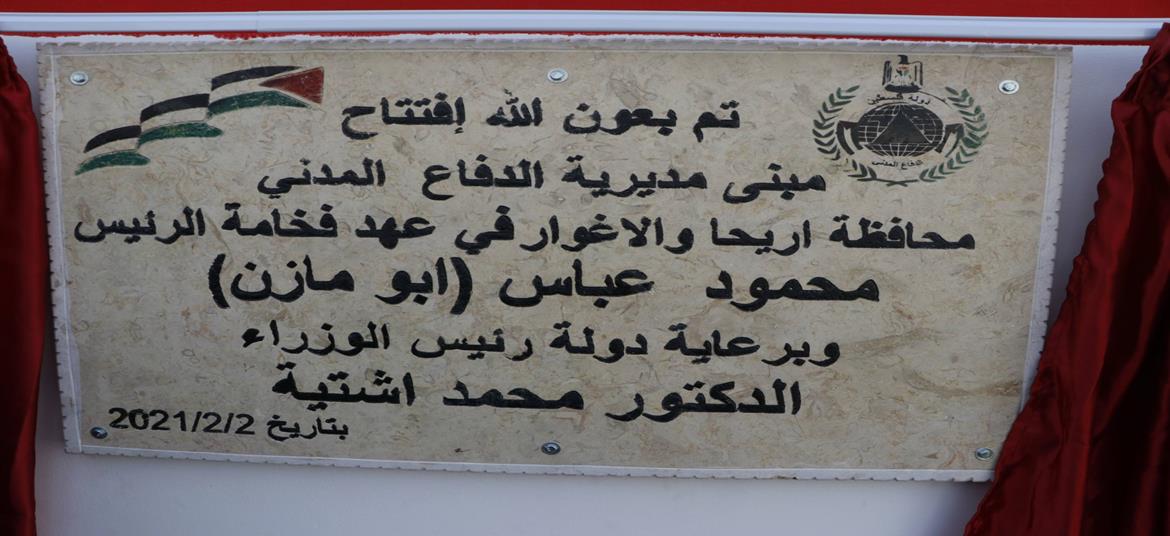 دولة فلسطين
الدفاع المدني
تم بعون الله إفتتاح
مبنى مديرية الدفاع المدني
محافظة اريحا والاغوار في عهد فخامة الرئيس
محمود عباس (ابو مازن)
وبرعاية دولة رئيس الوزراء
الدكتور محمد اشتية
بتاريخ 2021/2/2